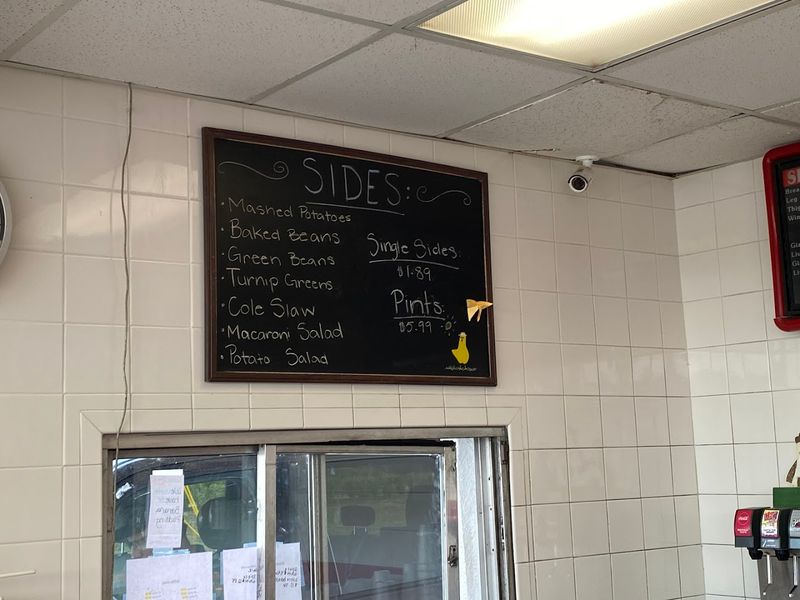 SIDES:
· Mashed Potatoes
· Baked Beans
· Green Beans
· Turnip Greens
· Cole Slaw
· Macaroni Salad
· Potato Salad
Single Sides:
$1.89
Pints:
$5.99
Banana
Pudding